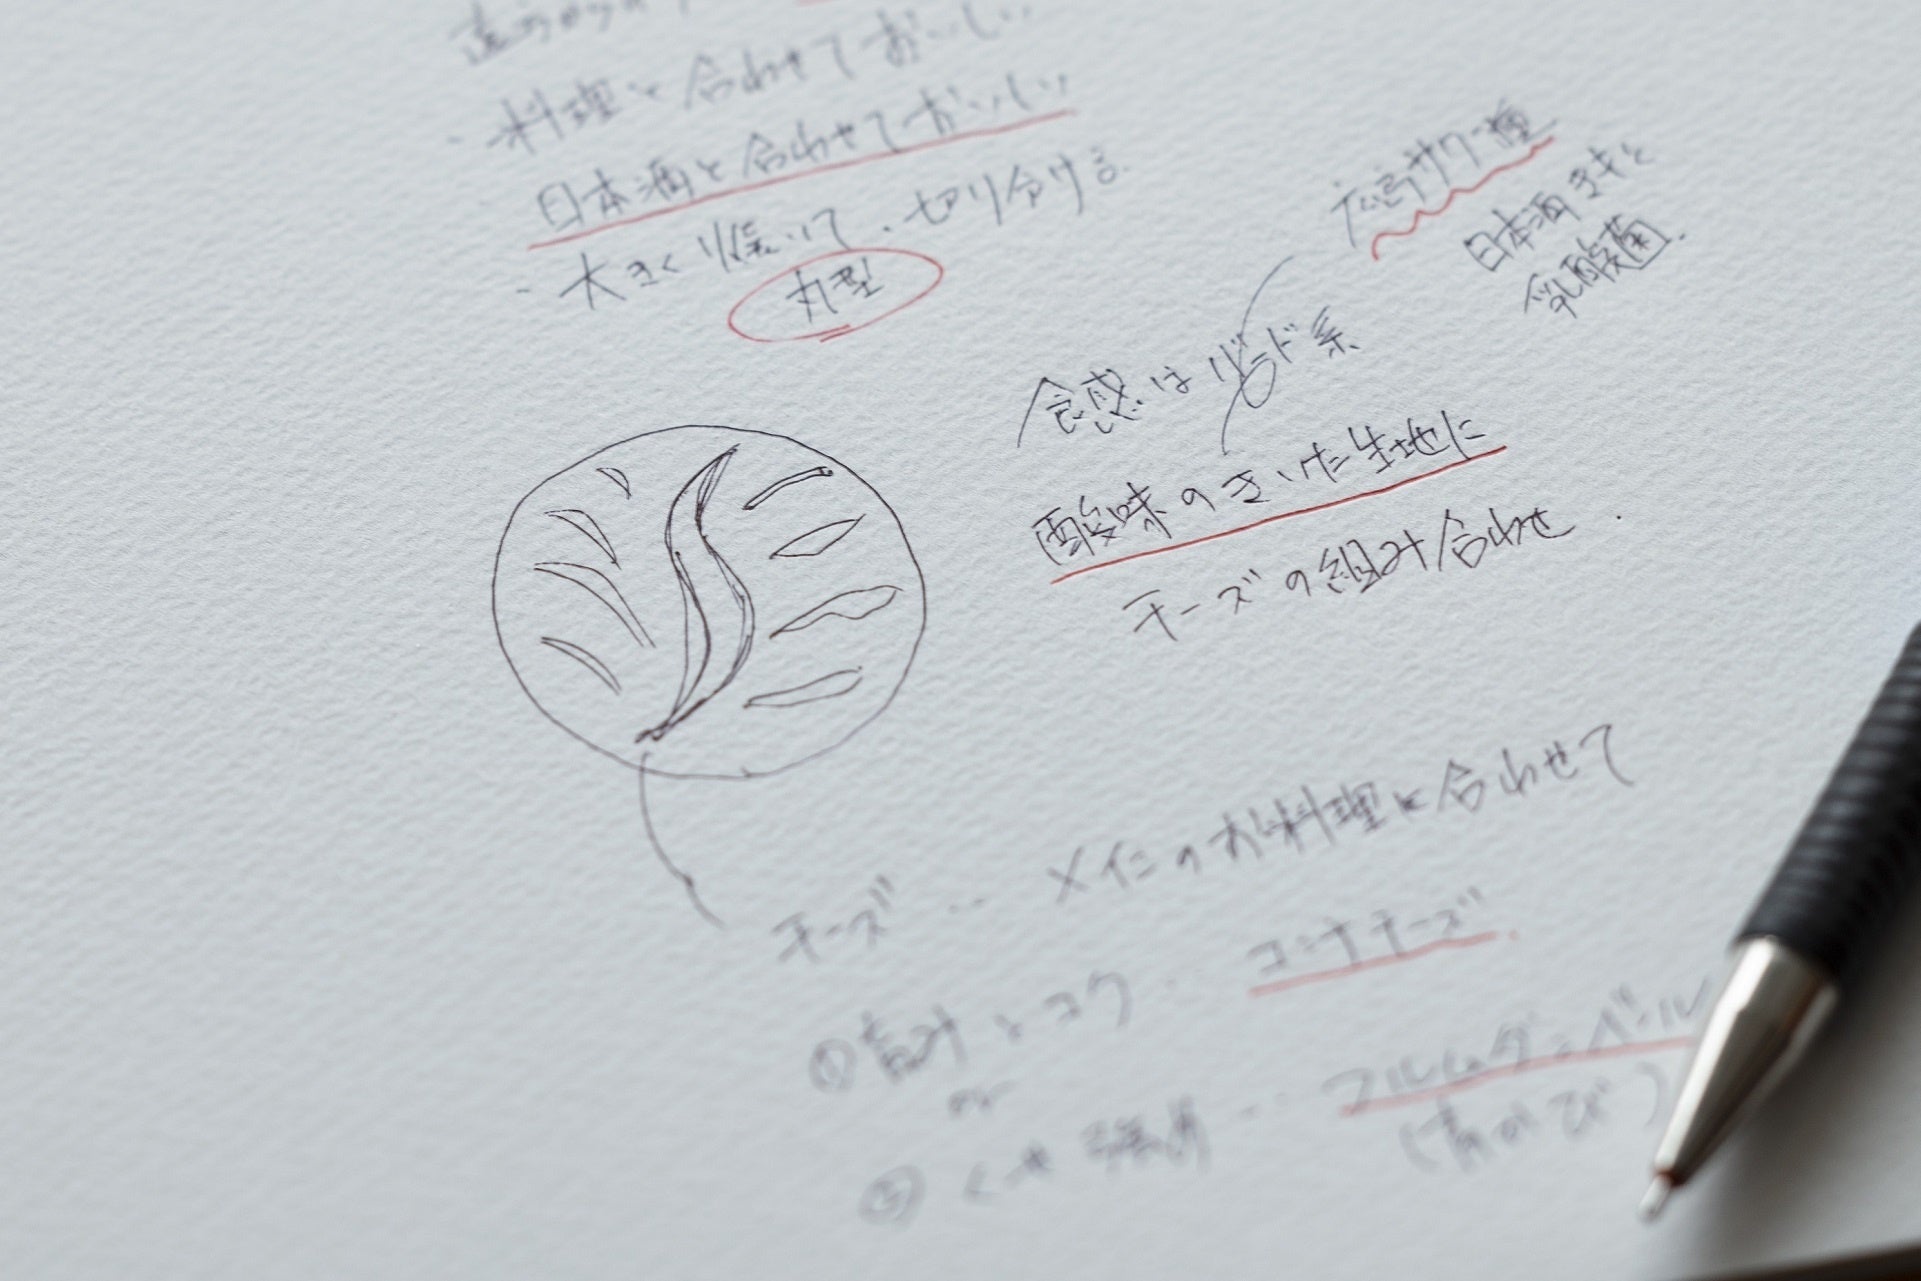 ・料理と合わせておいしい
日本酒と合わせておいしい
・大きく焼いて、切り分ける
丸型
広島サワー種
日本酒きもと
乳酸菌.
食感はリーンド系
酸味のきいた生地に
チーズの組み合わせ.
チーズ‥ メインのお料理に合わせて
① 旨みとコク‥ コンテチーズ.
or
② くせ強系‥ フルムダンベール
(青かび)